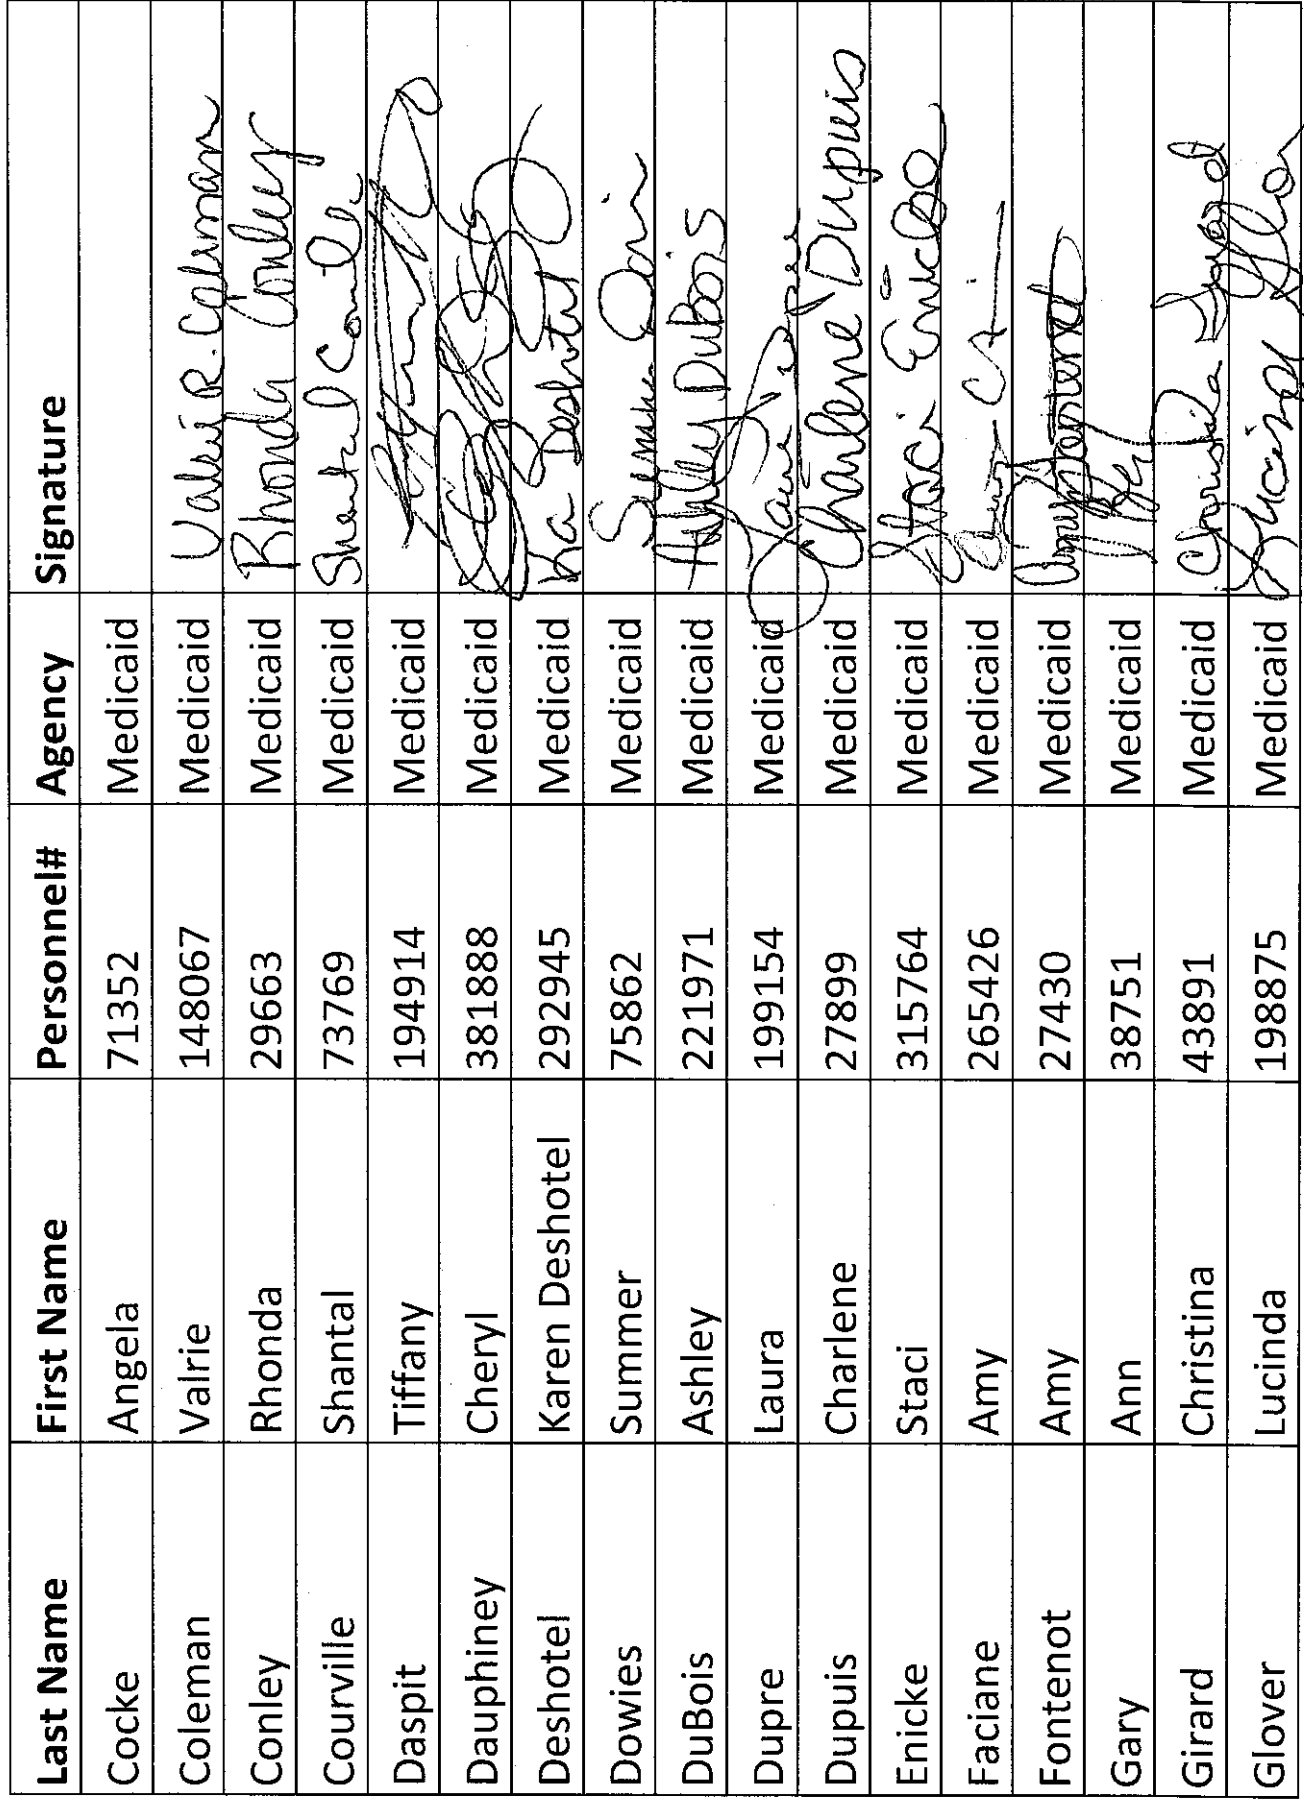 Last Name First Name Personnel# Agency Signature
Cocke Angela 71352 Medicaid
Coleman Valrie 148067 Medicaid Valrie R. Coleman
Conley Rhonda 29663 Medicaid Rhonda Conley
Courville Shantal 73769 Medicaid Shantal
Daspit Tiffany 194914 Medicaid
Dauphiney Cheryl 381888 Medicaid
Deshotel Karen Deshotel 292945 Medicaid Deshotel
Dowies Summer 75862 Medicaid
DuBois Ashley 221971 Medicaid Ashley DuBois
Dupre Laura 199154 Medicaid Laura
Dupuis Charlene 27899 Medicaid Charlene Dupuis
Enicke Staci 315764 Medicaid Staci Enicke
Faciane Amy 265426 Medicaid
Fontenot Amy 27430 Medicaid Amy Fontenot
Gary Ann 38751 Medicaid
Girard Christina 43891 Medicaid Christina Girard
Glover Lucinda 198875 Medicaid Lucinda Glover